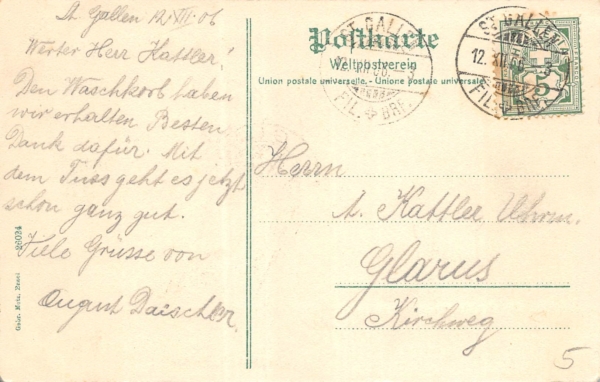 St. Gallen 12/XII. 06
Werter Herr Kattler!
Den Waschkorb haben
wir erhalten Besten
Dank dafür. Mit
dem Fuss geht es jetzt
schon ganz gut.
Viele Grüsse von
August Daischler
Postkarte
Weltpostverein
Union postale universelle. - Unione postale universale
ST. GALLEN
12. XII. 06
FIL. BRF.
ST. GALLEN
12. XII. 06
FIL. BRF.
5
Herrn
A. Kattler Uhrm.
Glarus
Kirchweg
5
Gebr. Metz, Basel
26034